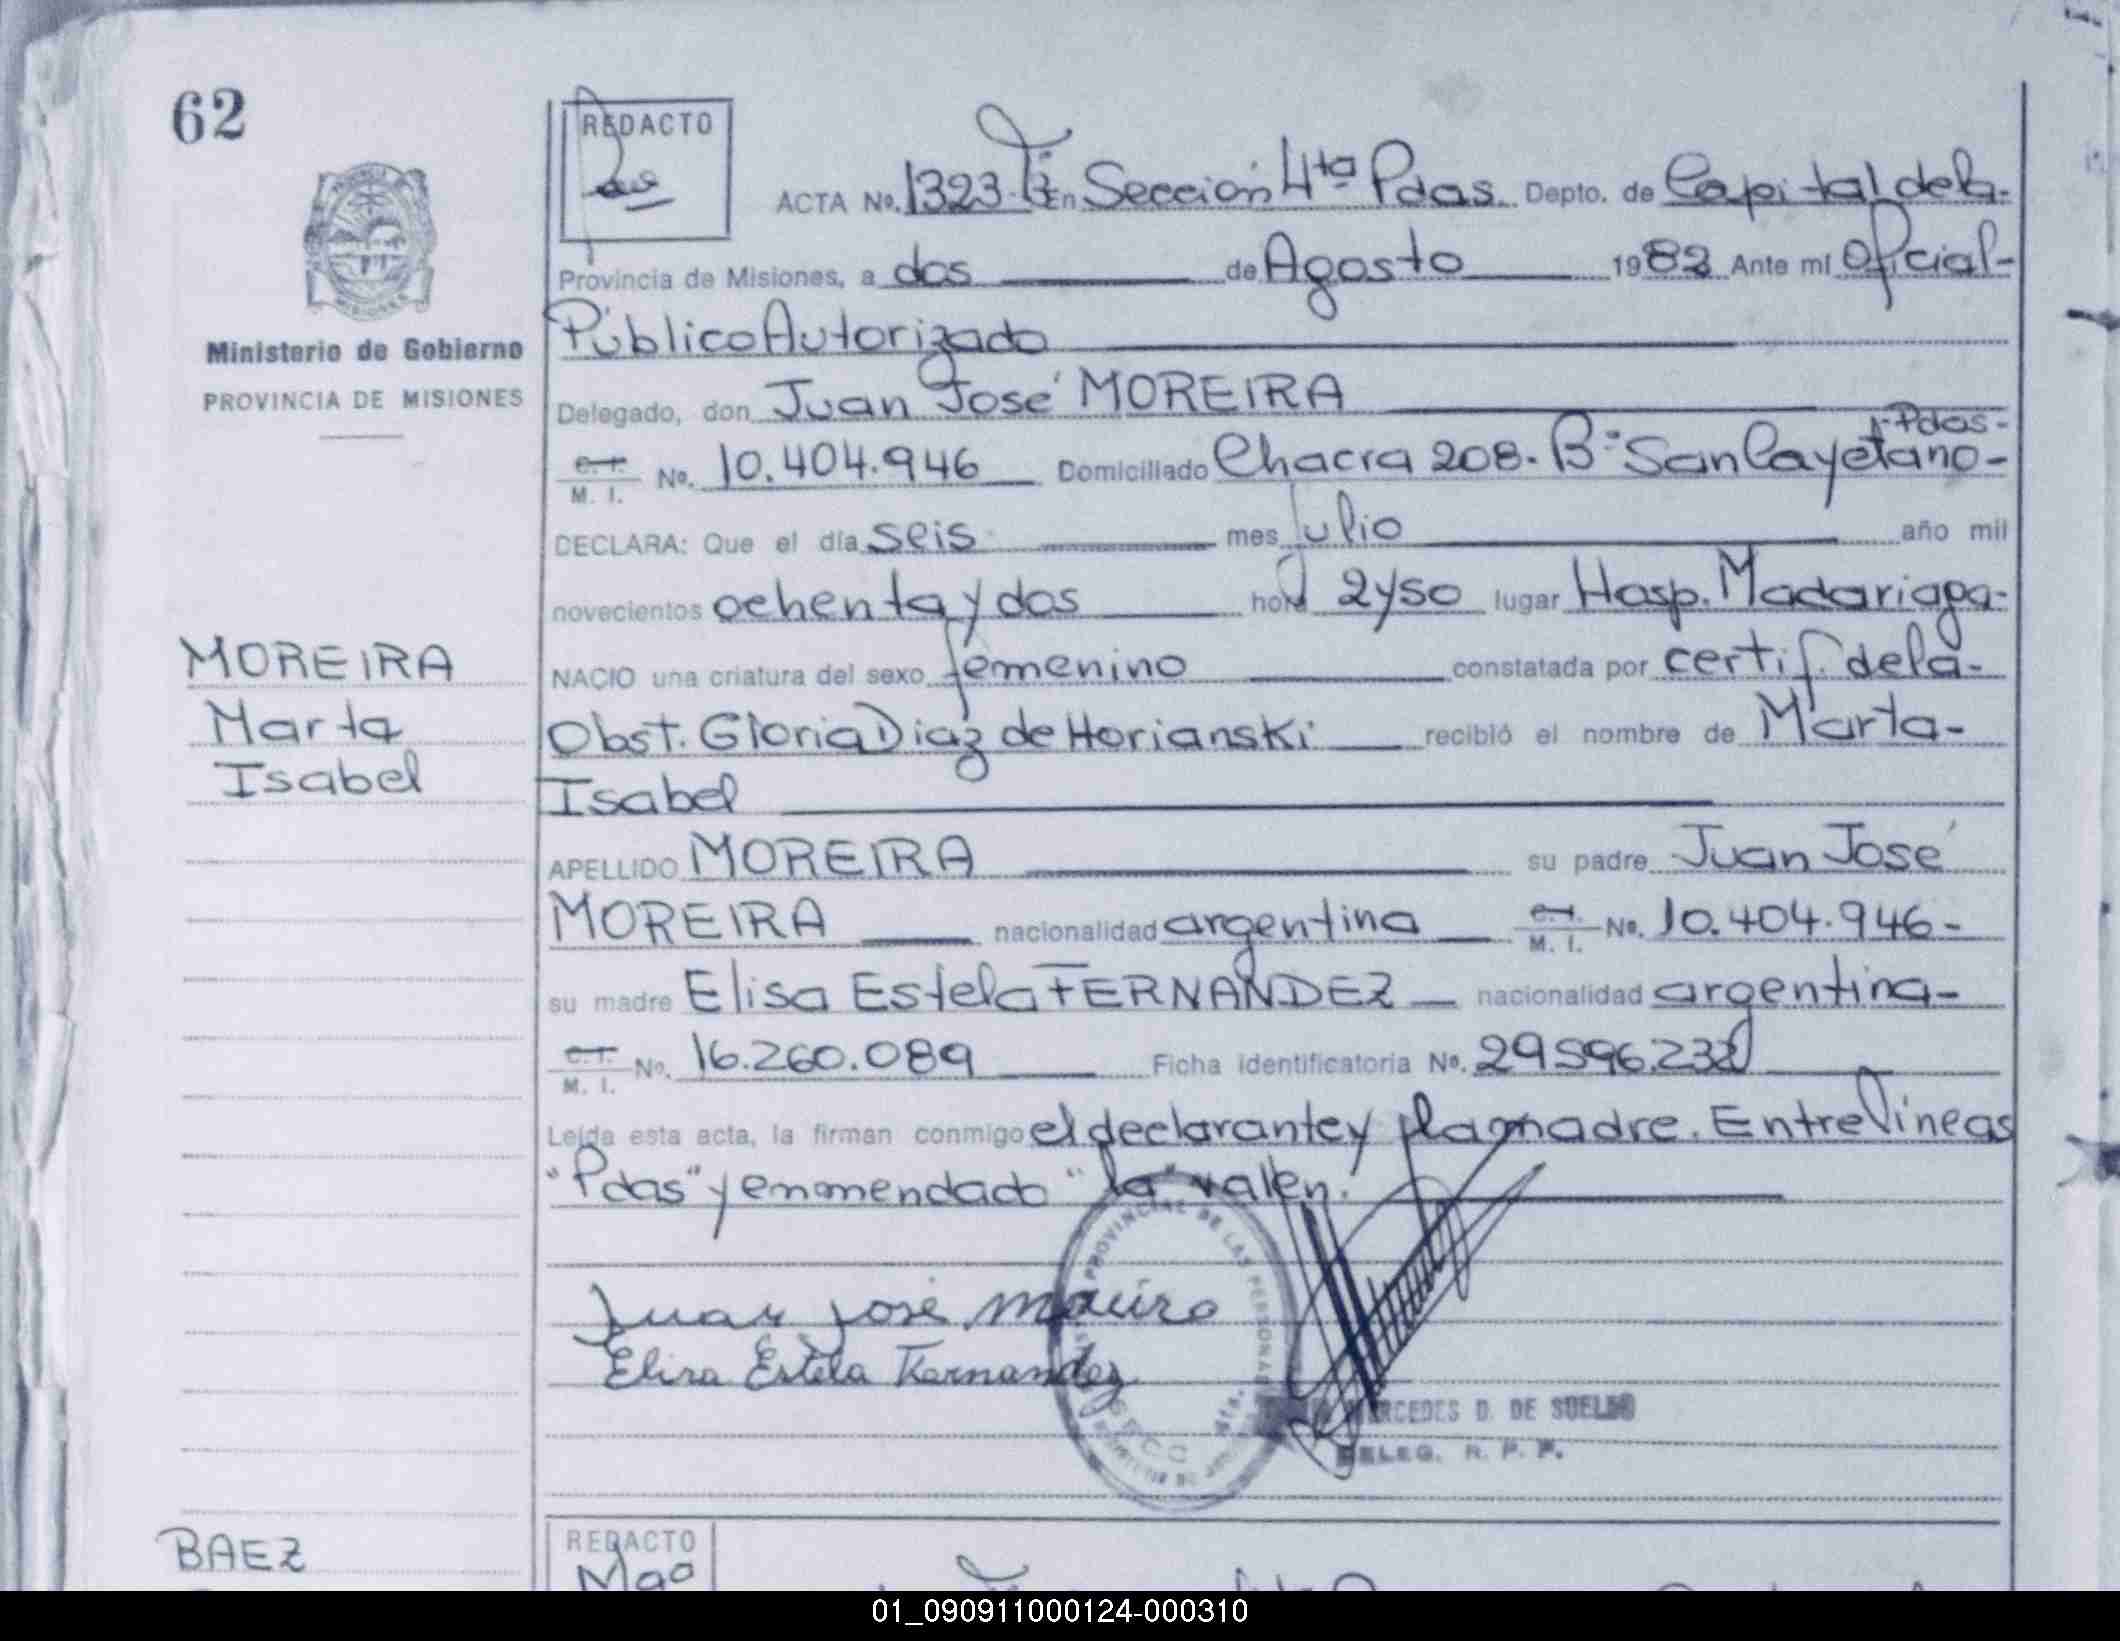 62
REDACTO
ACTA No. 1323. T: I En Sección 4ta Pdas. Depto. de Capital de la-
Provincia de Misiones, a dos de Agosto 1982 Ante mi Oficial-
Público Autorizado
Ministerio de Gobierno
PROVINCIA DE MISIONES
Delegado, don Juan José MOREIRA
-Pdas-
C. I. M. I. No. 10.404.946 Domiciliado Chacra 208. B° San Cayetano-
DECLARA: Que el día seis mes Julio año mil
novecientos ochenta y dos hora 2 y 50 lugar Hosp. Madariaga-
MOREIRA
Marta
Isabel
NACIO una criatura del sexo femenino constatada por certif. de la-
Obst. Gloria Diaz de Horianski recibió el nombre de Marta-
Isabel
APELLIDO MOREIRA su padre Juan José
MOREIRA nacionalidad argentina C. I. M. I. No. 10.404.946-
su madre Elisa Estela FERNANDEZ nacionalidad argentina-
C. I. M. I. No. 16.260.089 Ficha identificatoria No. 29596.232
Leída esta acta, la firman conmigo el declarante y la madre. Entre líneas
"Pdas" y enmendado "la" valen.
Juan José Moreira
Elisa Estela Fernandez
PROVINCIAL DE LAS PERSONAS
4ta.
MERCEDES D. DE SOELBO
DELEG. R. P. P.
BAEZ
REDACTO
01_090911000124-000310